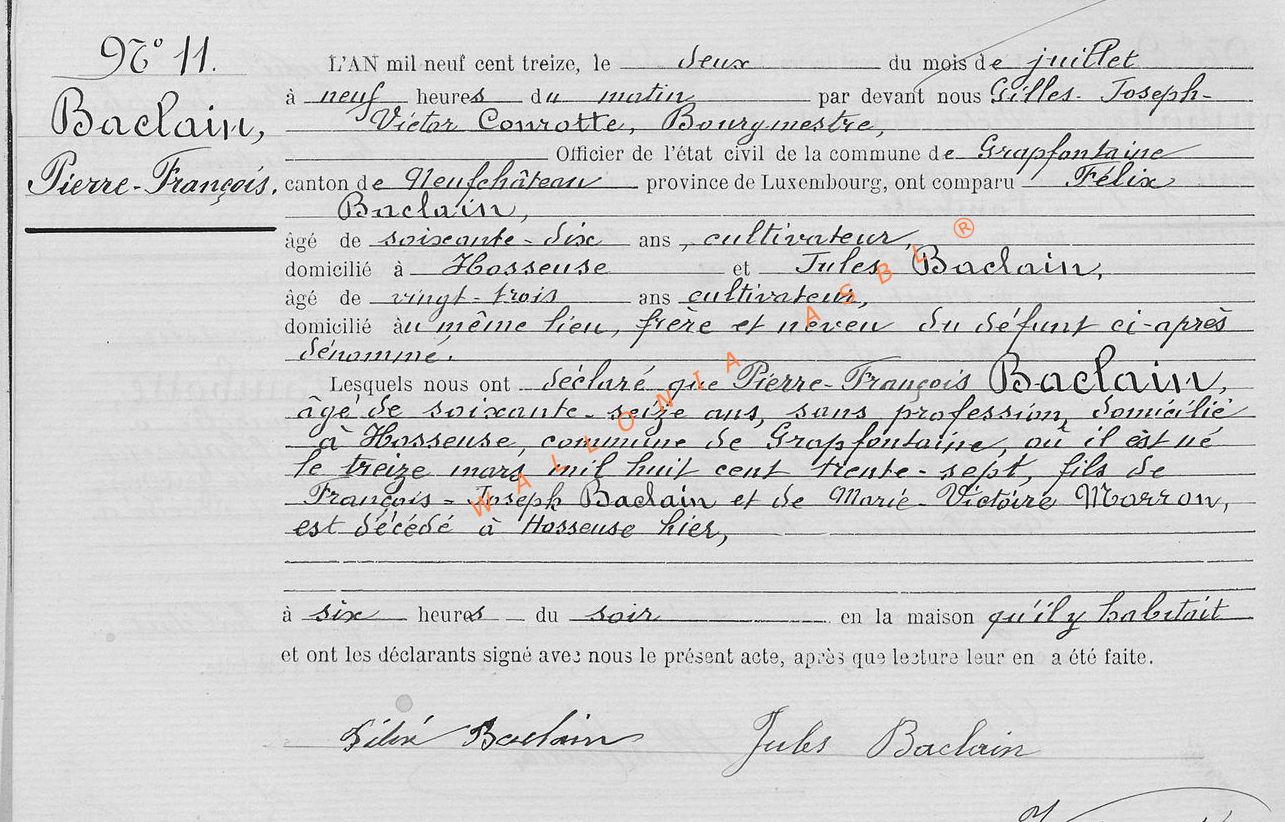 N° 11.
Baclain,
Pierre-François.
L'AN mil neuf cent treize, le deux du mois de juillet
à neuf heures du matin par devant nous Gilles-Joseph-
Victor Conrotte, Bourgmestre,
Officier de l'état civil de la commune de Grapfontaine
canton de Neufchâteau province de Luxembourg, ont comparu Félix
Baclain,
âgé de soixante-dix ans, cultivateur,
domicilié à Hosseuse et Jules Baclain,
âgé de vingt-trois ans cultivateur,
domicilié àu même lieu, frère et neveu du défunt ci-après
dénommé.
Lesquels nous ont déclaré que Pierre-François Baclain,
âgé de soixante-seize ans, sans profession, domicilié
à Hosseuse, commune de Grapfontaine, où il est né
le treize mars mil huit cent trente-sept, fils de
François-Joseph Baclain et de Marie-Victoire Marron,
est décédé à Hosseuse hier,
à six heures du soir en la maison qu'il y habitait
et ont les déclarants signé avec nous le présent acte, après que lecture leur en a été faite.
Félix Baclain Jules Baclain
WALLONIA ASBL ®